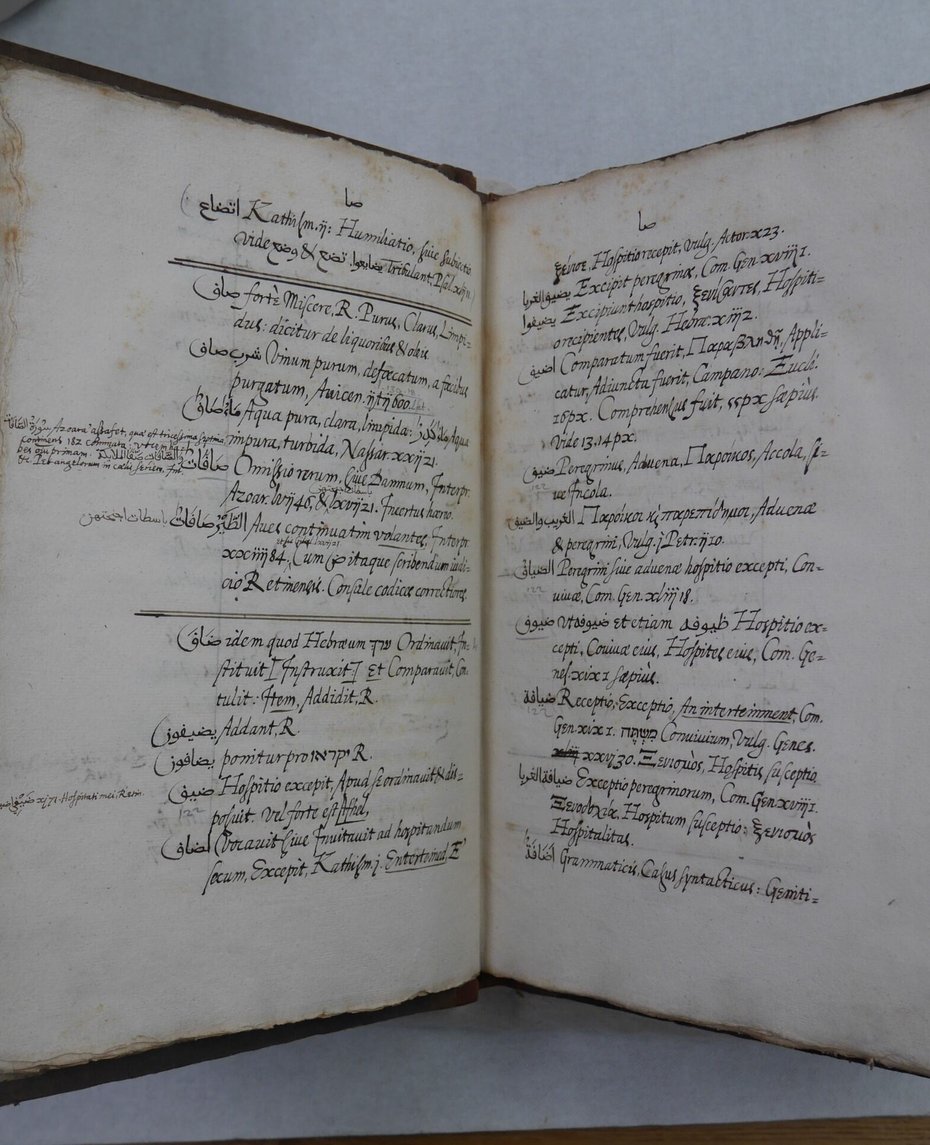 صا
اتضاع Kathism. ij: Humiliatio, sive subiectio
Vide وضع & تضع. يضايعوا Tribulant, Psal.
صاف fortè Miscere, R. Purus, Clarus, Limpi=
dus: dicitur de liquoribus & obus
شرب صاف Vinum purum, defæcatum, a fæcibus
purgatum, Avicen. 600.
ماء صاف Aqua pura, clara, limpida: Aqua
impura, turbida, Nassar. xxij 21.
صافات Omissio rerum, sive Damnum, Interpr.
Azoar. 46, & lxvij 21. Incertus hæreo.
الطير صافات Aves continuatìm volantes, Interpr.
xxiiij 84, Cum ض itaque scribendum iudi=
cio Retinensis. Consule codices correctiores.
سورة الصافات Azoara assafat, quæ est tricesima septima
continens 182 commata
باسطات اجنحتهن
صاف idem quod Hebræum ערך Ordinavit, In=
stituit [Instruxit] Et Comparavit, Con
tulit: Item, Addidit, R.
يضيفون Addant, R.
يضافون ponitur pro יקראו R.
ضيف Hospitio excepit, Apud se ordinavit & dis=
posuit. Vel forte est
xj 71. Hospitati mei, Retin.
122
اضاف Vocavit sive Invitavit ad hospitandum
secum, Excepit, Kathism. j. Entertained, E
صا
ξένισε, Hospitio recepit, Vulg. Actor. x 23.
يضيف الغربا Excipit peregrinos, Com. Gen. xviij 1.
يضيفوا Excipiunt hospitio, ξενίσαντες, Hospiti=
o recipientes, Vulg. Hebræ. xiij 2.
اضيف Comparatum fuerit, Παραβληθῆ, Appli=
catur, Adiuncta fuerit, Campano: Eucli.
16 px. Comprehensus fuit, 55 px sæpius.
Vide 13.14 px.
ضيف Peregrinus, Advena, Πάροικος, Accola, si=
ve Incola.
الغريب والضيف Πάροικοι κὶ παρεπίδημοι, Advenæ
& peregrini, Vulg. j Petr. ij 10.
الضياف Peregrini sive advenæ hospitio excepti, Con=
vivæ, Com. Gen. xliij 18.
122
ضيوف ut ضيوفه et etiam ظيوفه Hospitio ex=
cepti, Convivæ eius, Hospites eius, Com. Ge=
nes. xix 1 sæpius.
ضيافة Receptio, Exceptio, An interteinment, Com.
122
Gen. xix 1. משתה Convivium, Vulg. Genes.
xxvj 30. Ξενισμὸς, Hospitis susceptio
ضيافة الغربا Exceptio peregrinorum, Com. Gen. xviij 1.
Ξενοδοχία, Hospitum susceptio: ξενισμὸς
Hospitalitas.
اضافة Grammaticis, Casus syntacticus: Geniti=